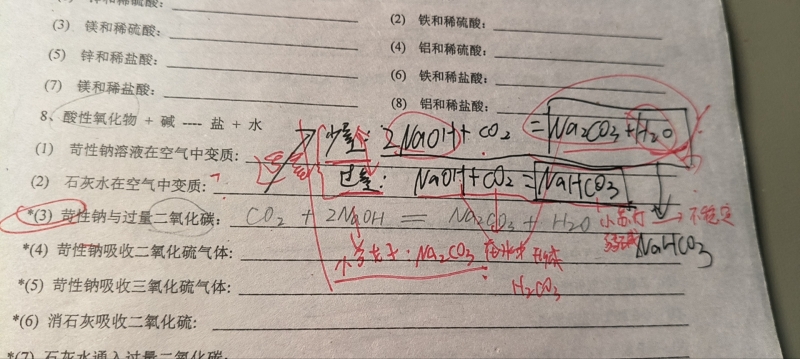 (2) 铁和稀硫酸:
(3) 镁和稀硫酸:
(4) 铝和稀硫酸:
(5) 锌和稀盐酸:
(6) 铁和稀盐酸:
(7) 镁和稀盐酸:
(8) 铝和稀盐酸:
8、酸性氧化物 + 碱 ---- 盐 + 水
少量: 2NaOH + CO2 = Na2CO3 + H2O
(1) 苛性钠溶液在空气中变质:
过量: NaOH + CO2 = NaHCO3
(2) 石灰水在空气中变质:
*(3) 苛性钠与过量二氧化碳: CO2 + 2NaOH = Na2CO3 + H2O
小苏打 → 不稳定
NaHCO3
*(4) 苛性钠吸收二氧化硫气体:
Na2CO3
H2CO3
*(5) 苛性钠吸收三氧化硫气体:
*(6) 消石灰吸收二氧化硫:
*(7) 石灰水通入过量二氧化碳: